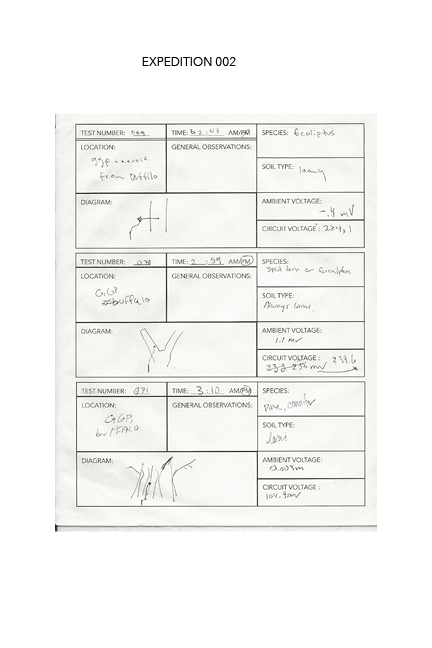 EXPEDITION 002
TEST NUMBER: 069 TIME: 2:43 AM/PM SPECIES: Ecoliptus
LOCATION: GENERAL OBSERVATIONS:
ggp
from Buffilo
SOIL TYPE: loamy
DIAGRAM: AMBIENT VOLTAGE:
-.4 mV
CIRCUIT VOLTAGE: 224.1
TEST NUMBER: 070 TIME: 2:59 AM/PM SPECIES:
or Eucalyptus
LOCATION: GENERAL OBSERVATIONS:
GGP
buffalo
SOIL TYPE:
Always loam.
DIAGRAM: AMBIENT VOLTAGE:
1.1 mv
CIRCUIT VOLTAGE: 239.6
mv
TEST NUMBER: 071 TIME: 3:10 AM/PM SPECIES:
pine, connifer
LOCATION: GENERAL OBSERVATIONS:
GGP,
buFFALO
SOIL TYPE:
loam
DIAGRAM: AMBIENT VOLTAGE:
0.003m
CIRCUIT VOLTAGE:
104.9mv